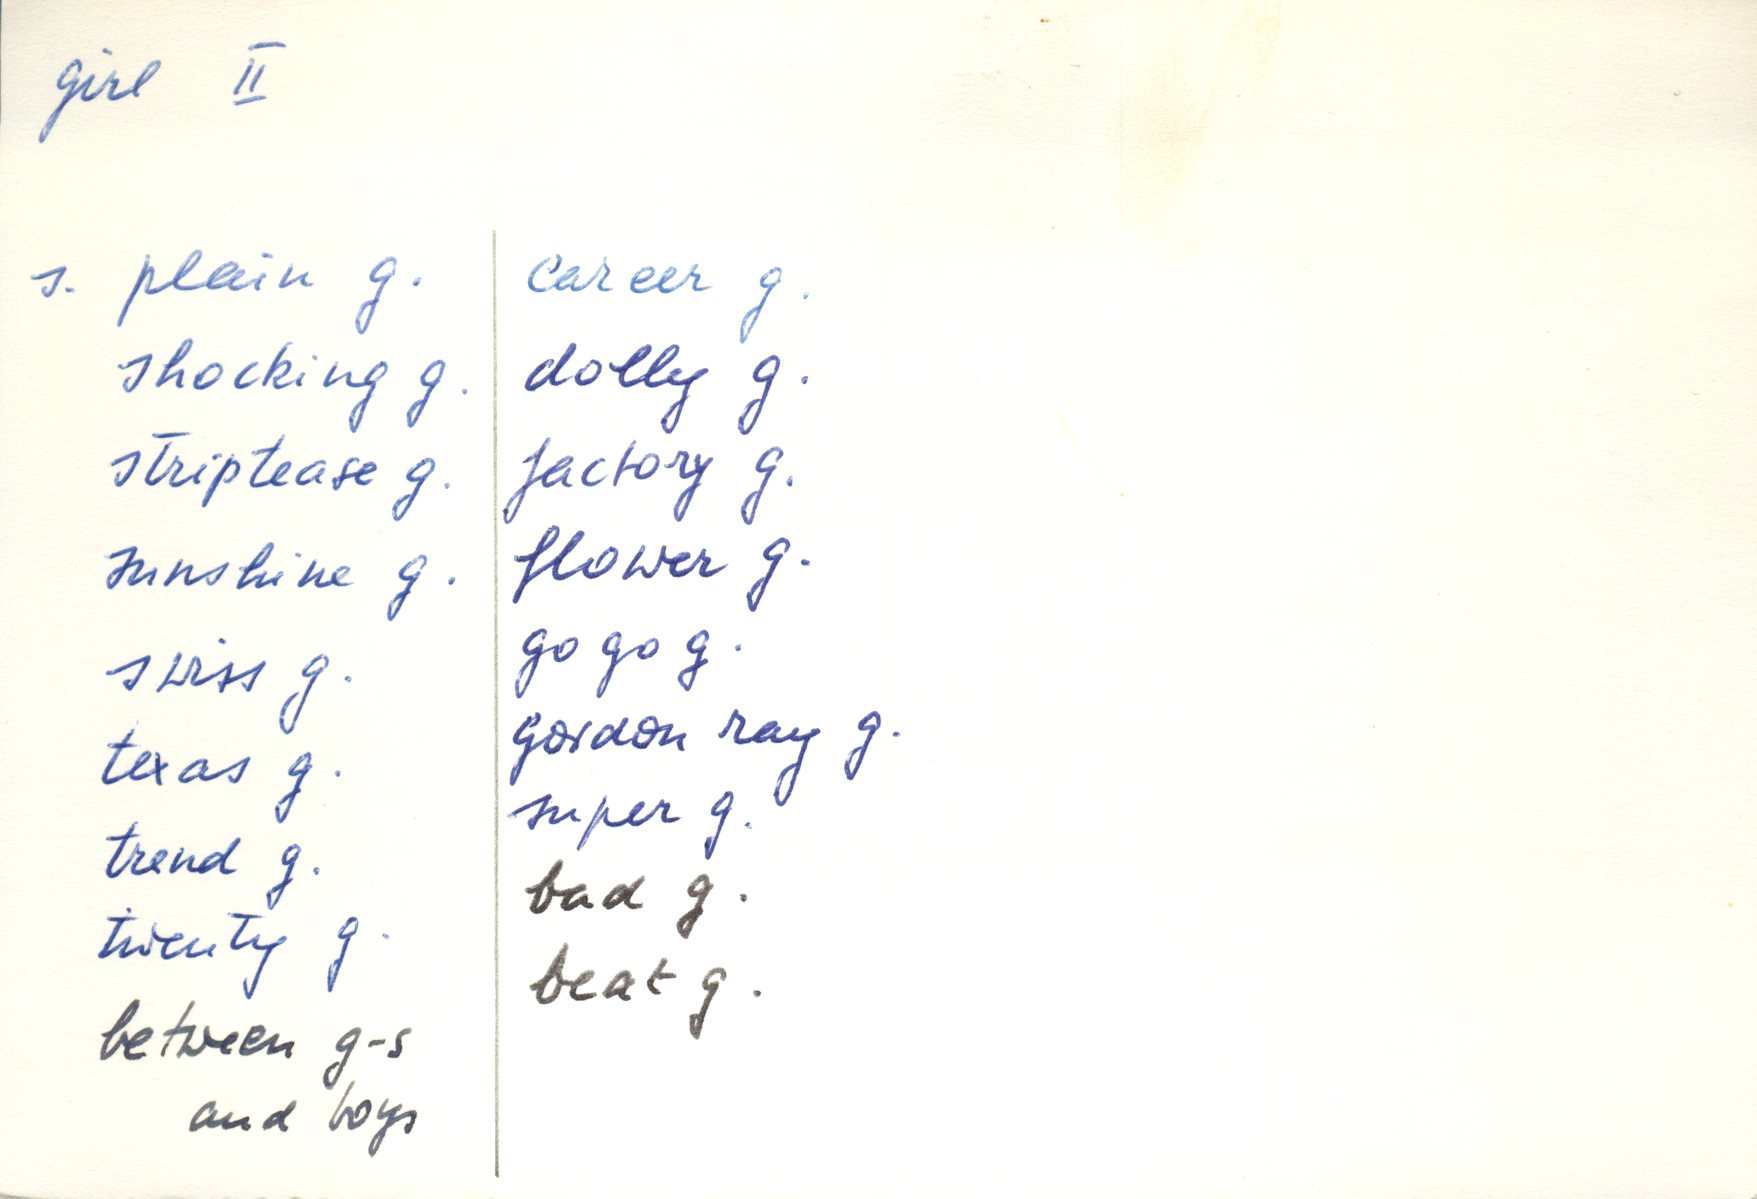 girl II
s. plain g.
shocking g.
striptease g.
sunshine g.
swiss g.
texas g.
trend g.
twenty g.
between g-s
and boys
career g.
dolly g.
factory g.
flower g.
go go g.
gordon ray g.
super g.
bad g.
beat g.